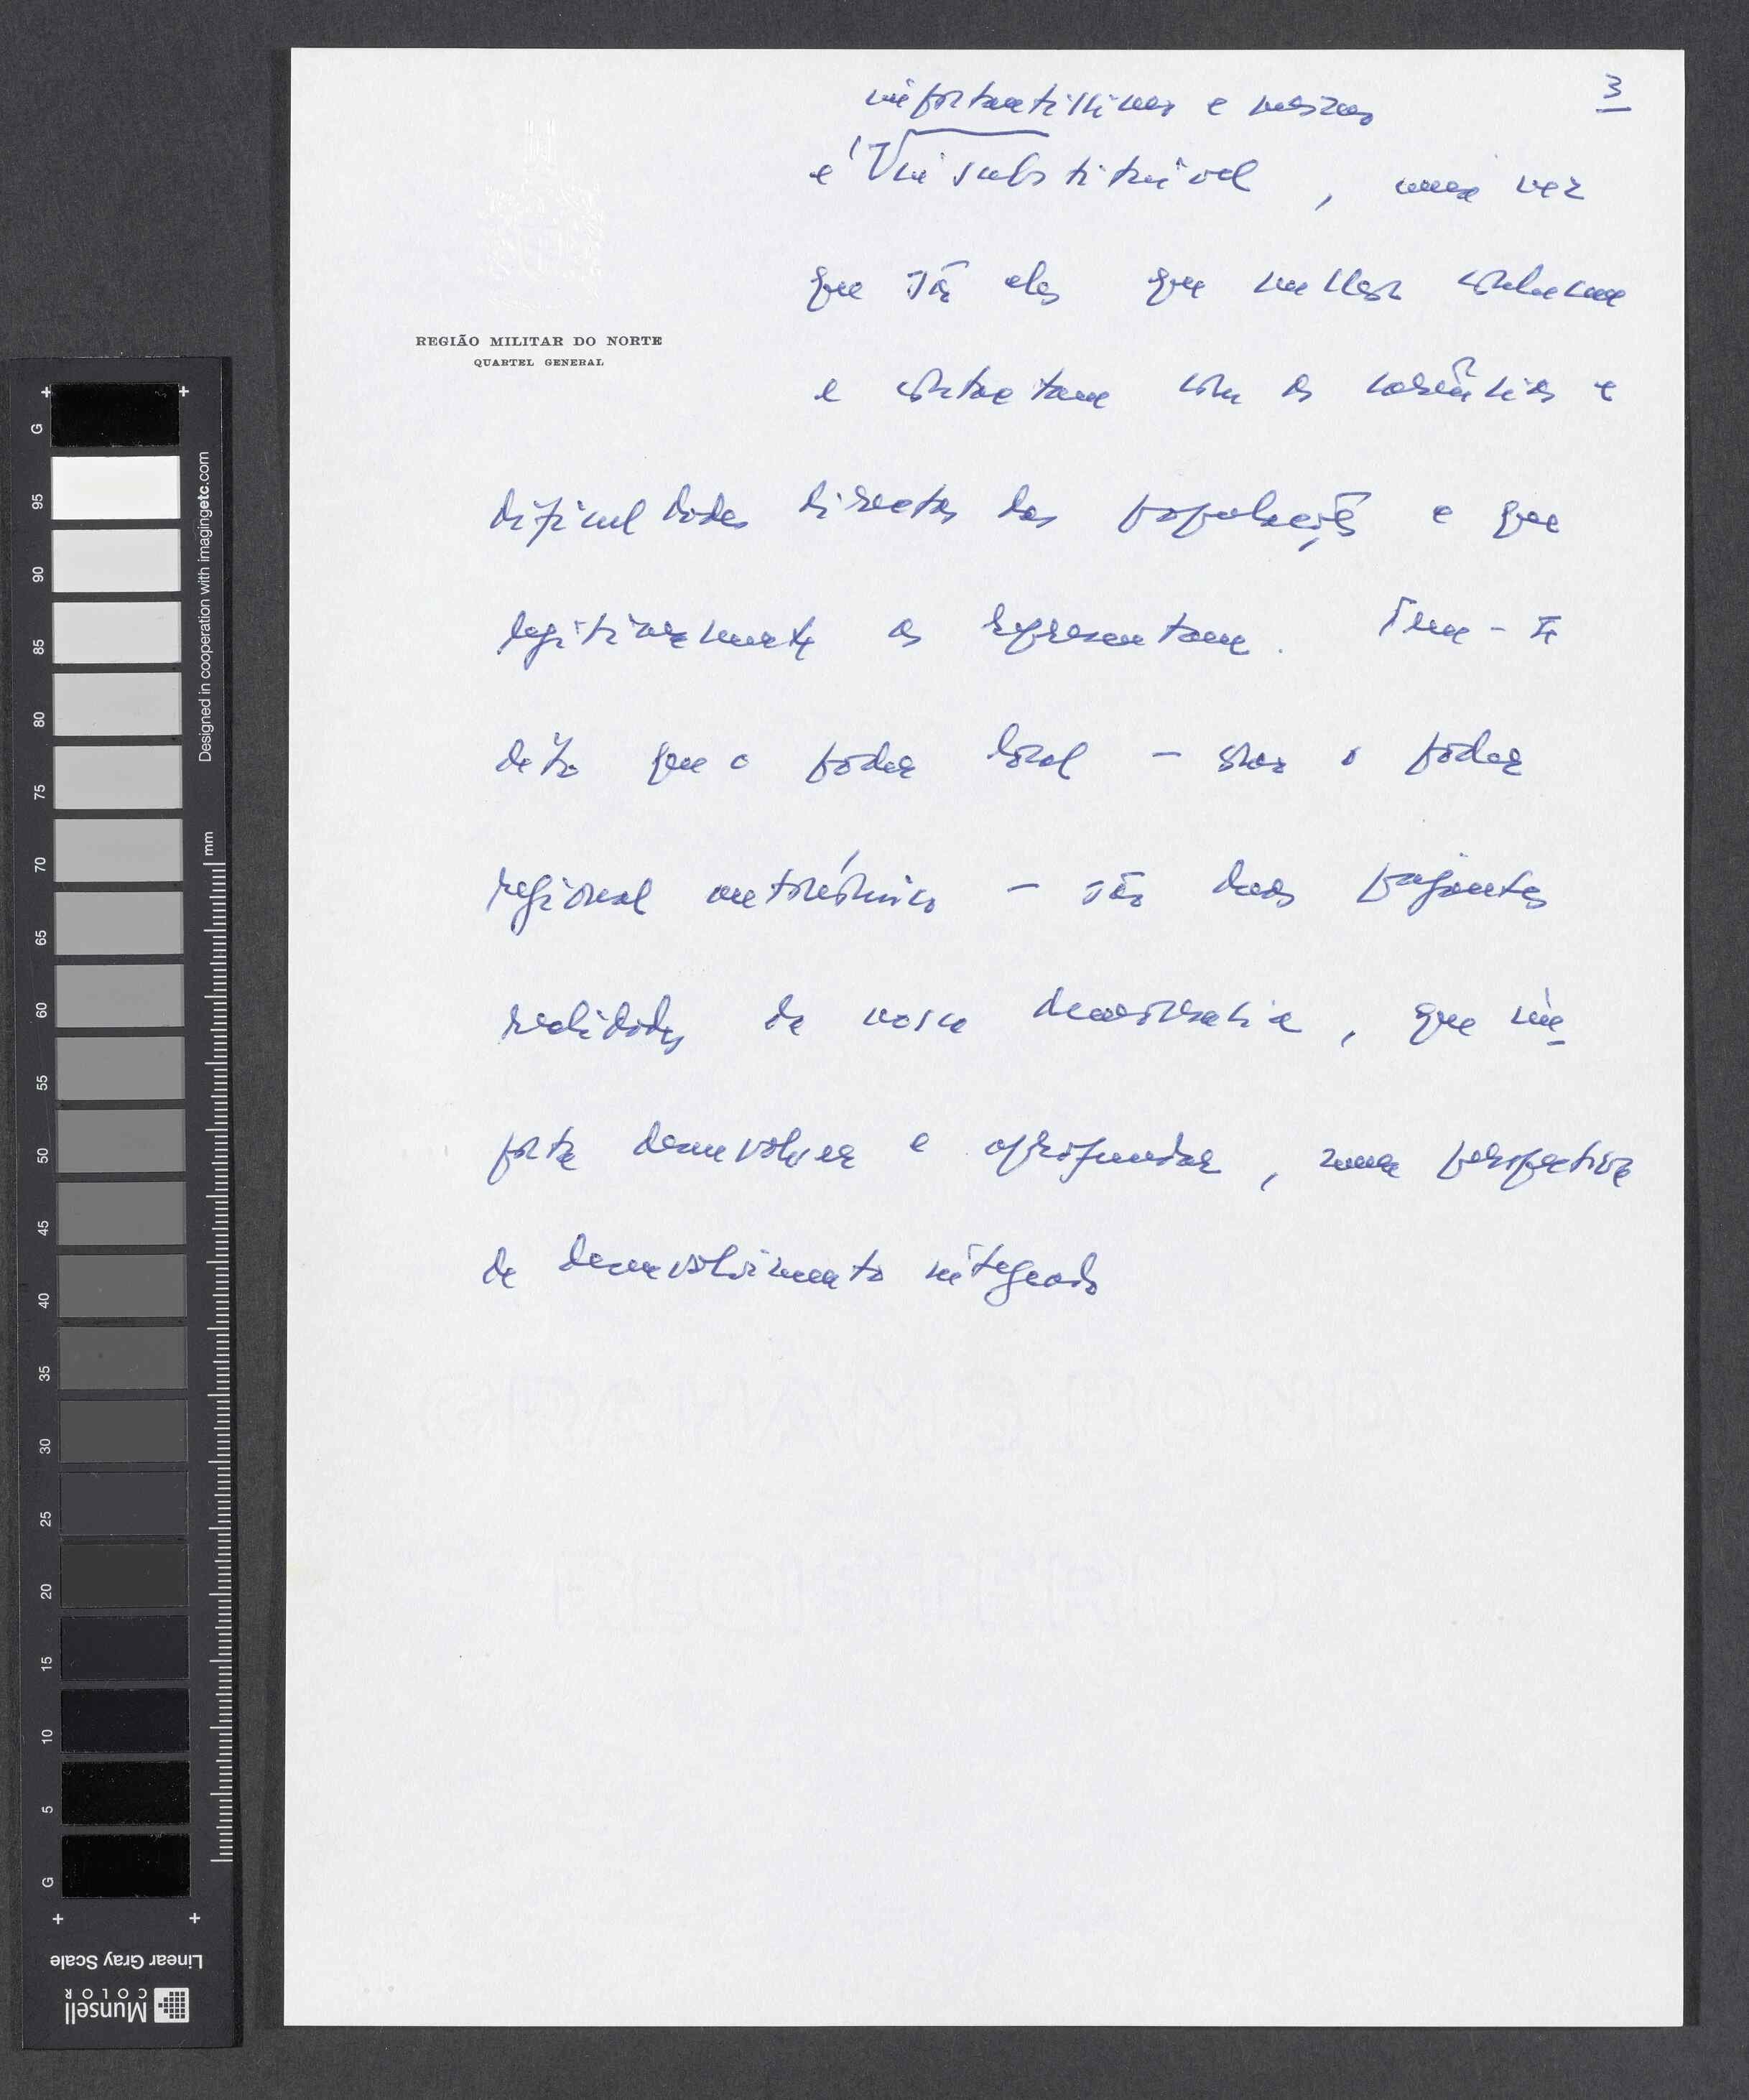 3
importantíssimo e mesmo
é insubstituível, uma vez
que são eles que melhor conhecem
REGIÃO MILITAR DO NORTE
QUARTEL GENERAL
e contactam com as carências e
dificuldades directas das populações e que
legitimamente as representam. Tem-se
dito que o poder local – como o poder
regional autonómico – são duas pujantes
realidades da nossa democracia, que im-
porta desenvolver e aprofundar, numa perspectiva
de desenvolvimento integrado
GRAHAMS BOND
REGISTERED
G
95
90
85
80
75
70
65
60
55
50
45
40
35
30
25
20
15
10
5
G
Designed in cooperation with imagingetc.com
mm
Linear Gray Scale
Munsell
COLOR